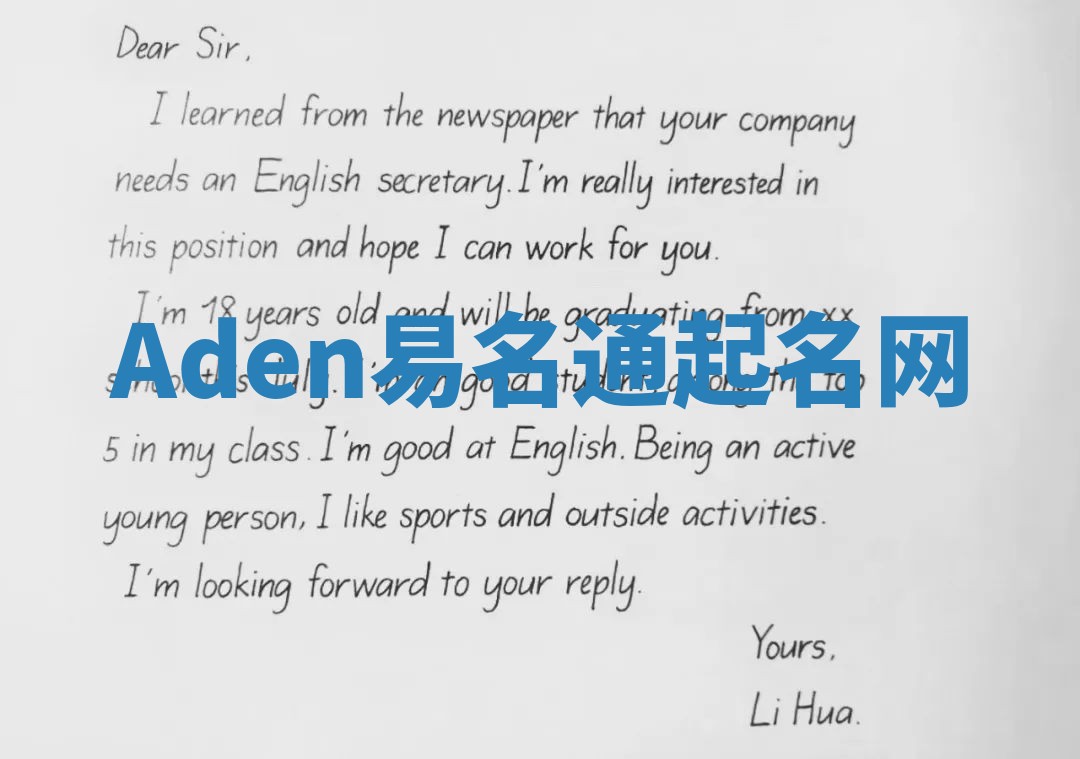 Dear Sir,
I learned from the newspaper that your company
needs an English secretary. I'm really interested in
this position and hope I can work for you.
I'm 18 years old and will be graduating from xx
Aden易名通起名网
school this July. I'm a good student, among the top
5 in my class. I'm good at English. Being an active
young person, I like sports and outside activities.
I'm looking forward to your reply.
Yours,
Li Hua.